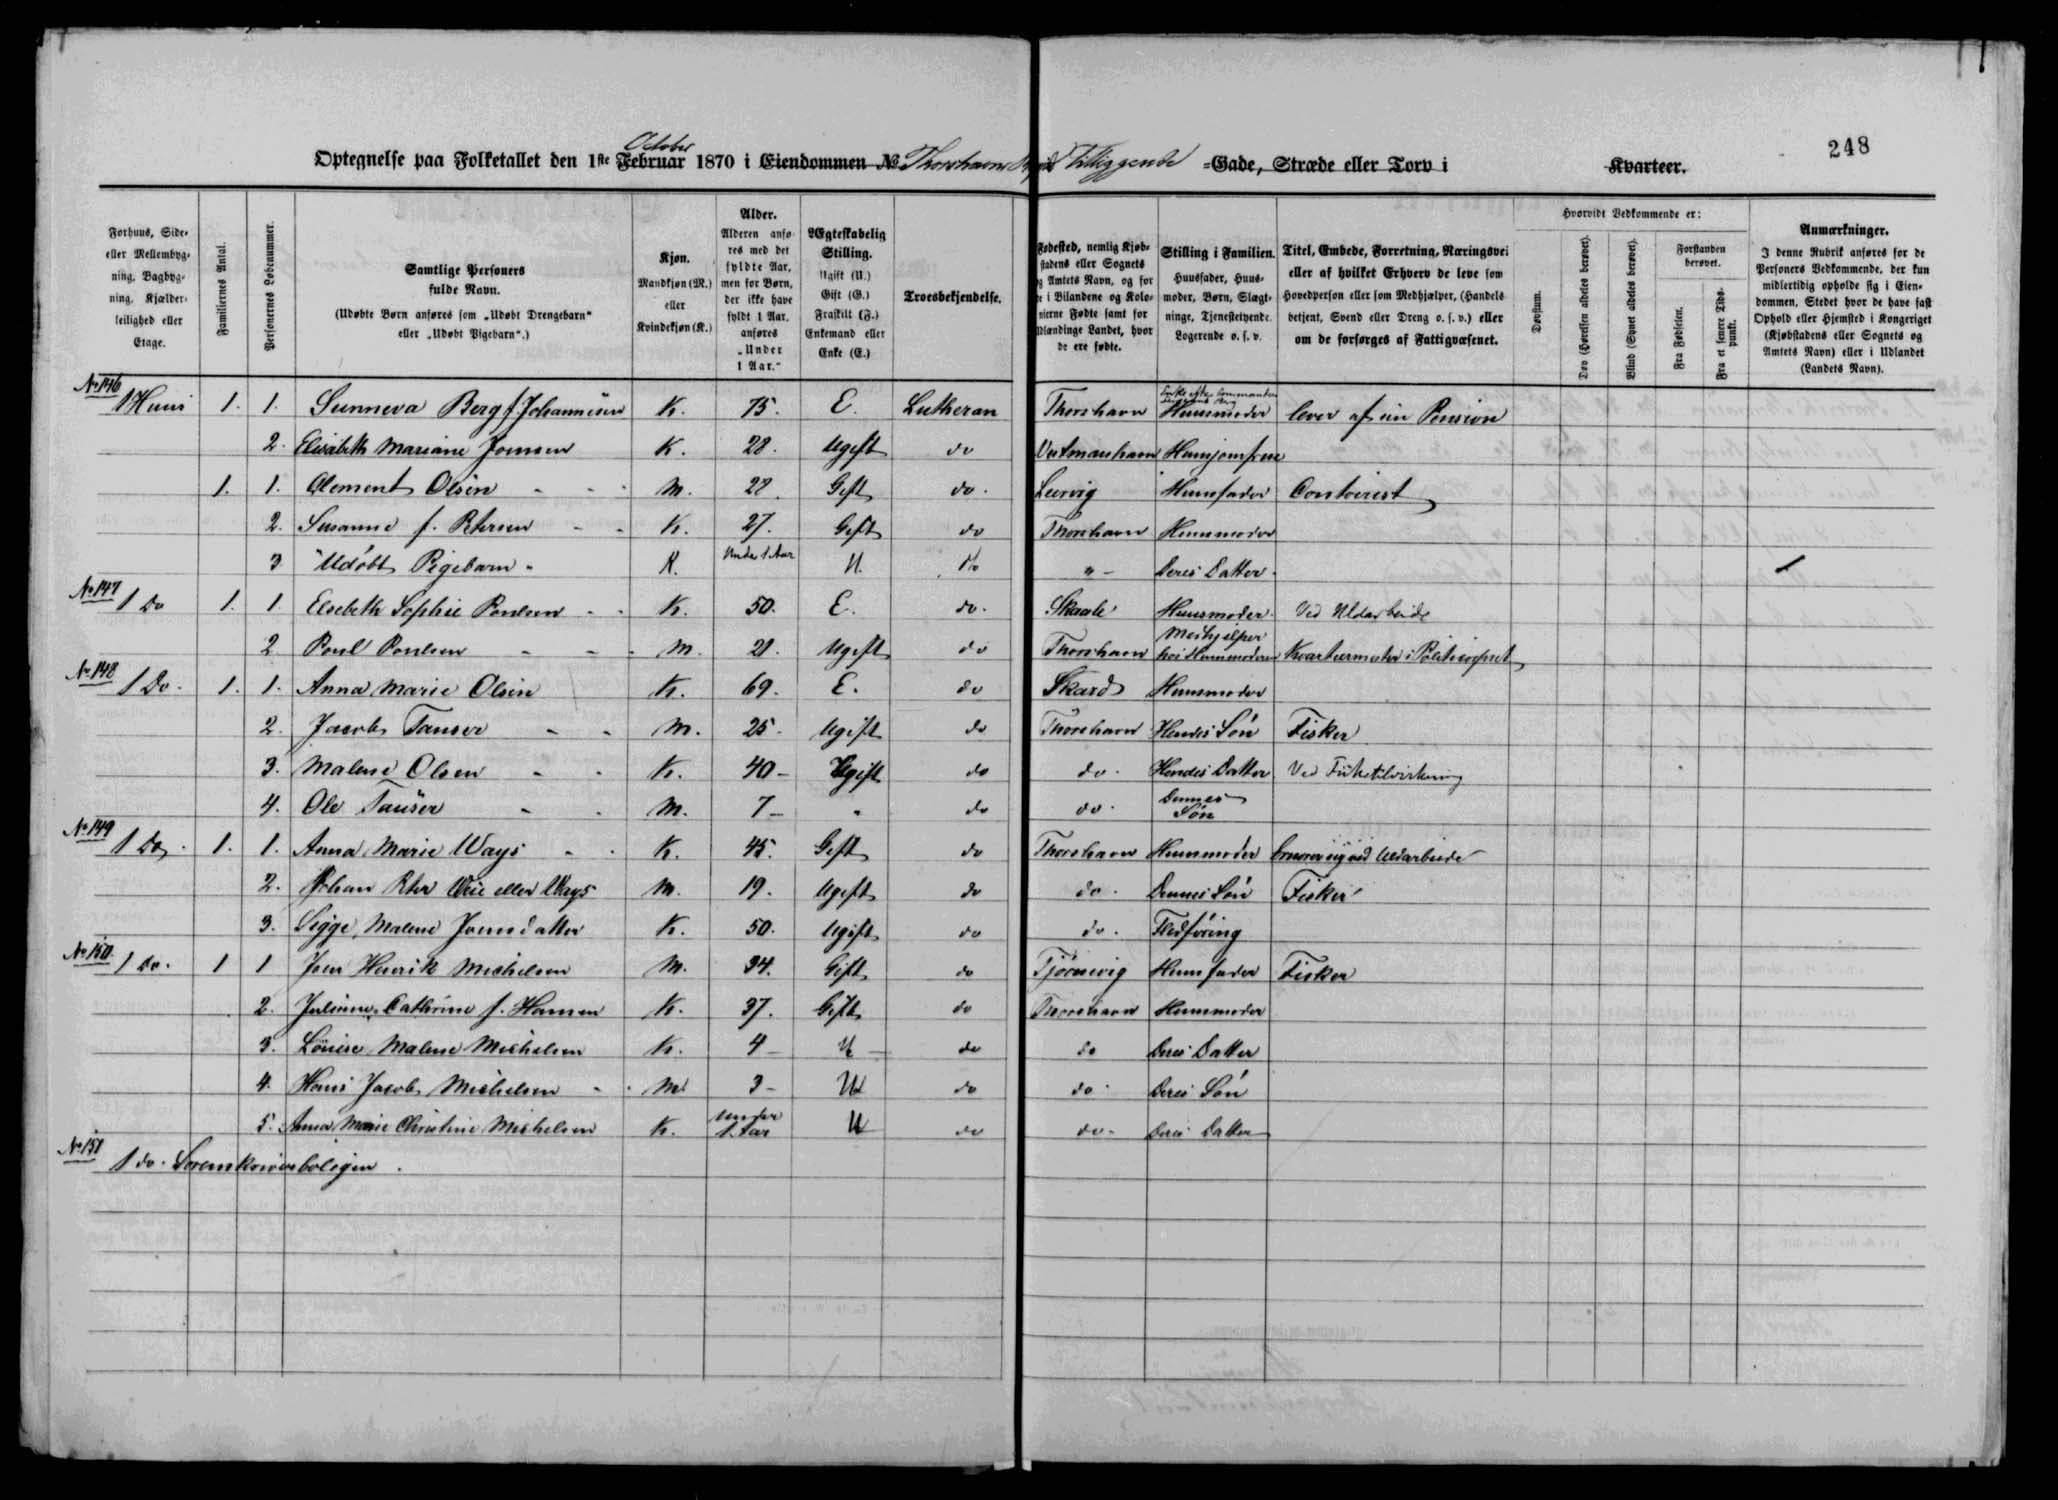 248
October
Optegnelse paa Folketallet den 1ste Februar 1870 i Eiendommen № Thorshavn Tilliggende =Gade, Stræde eller Torv i Kvarteer.
Forhuus, Side= eller Mellembyg=ning, Bagbyg=ning, Kjælder=leilighed eller Etage.
Familiernes Antal.
Personernes Løbenummer.
Samtlige Personers fulde Navn.
(Udøbte Børn anføres som „Udøbt Drengebarn“ eller „Udøbt Pigebarn“.)
Kjøn.
Mandkjøn (M.) eller Kvindekjøn (K.)
Alder.
Alderen anfø=res med det fyldte Aar, men for Børn, der ikke have fyldt 1 Aar, anføres „Under 1 Aar.“
Ægteskabelig Stilling.
Ugift (U.) Gift (G.) Fraskilt (F.) Enkemand eller Enke (E.)
Troesbekjendelse.
Fødested, nemlig Kjøb=stadens eller Sognets og Amtets Navn, og for de i Bilandene og Kolo=nierne Fødte samt for Udlændinge Landet, hvor de ere fødte.
Stilling i Familien.
Huusfader, Huus=moder, Børn, Slægt=ninge, Tjenestetyende, Logerende o. s. v.
Titel, Embede, Forretning, Næringsvei eller af hvilket Erhverv de leve som Hovedperson eller som Medhjælper, (Handels=betjent, Svend eller Dreng o. s. v.) eller om de forsørges af Fattigvæsenet.
Hvorvidt Vedkommende er:
Døvstum.
Døv (Hørelsen aldeles berøvet).
Blind (Synet aldeles berøvet).
Forstanden berøvet.
Fra Fødselen.
Fra et senere Tids=punkt.
Anmærkninger.
I denne Rubrik anføres for de Personers Vedkommende, der kun midlertidig opholde sig i Eien=dommen, Stedet hvor de have fast Ophold eller Hjemsted i Kongeriget (Kjøbstadens eller Sognets og Amtets Navn) eller i Udlandet (Landets Navn).
No 146
1 Huus 1. 1. Sunneva Berg f. Johannesen K. 75. E. Lutheran Thorshavn Huusmoder lever af sin Pension
2. Elisabeth Mariane Joensen K. 28. Ugift do Vestmanhavn Huusjomfrue
1. 1. Clement Olsen M. 28. Gift do. Leervig Huusfader Contoirist
2. Susanne f. Petersen K. 27. Gift do Thorshavn Huusmoder
3 Udøbt Pigebarn K. Under 1 Aar U. do " Deres Datter
No 147
1 Do 1. 1. Elsebeth Sophie Poulsen K. 50. E. do. Skaale Huusmoder Ved Uldarbeide
2 Poul Poulsen M. 21. Ugift do Thorshavn Medhjelper hos Huusmoderen
No 148
1 Do. 1. 1. Anna Marie Olsen K. 69. E. do Skard Huusmoder
2. Jacob Tauser M. 25. Ugift do Thorshavn Hendes Søn Fisker
3. Malene Olsen K. 40 Ugift do do. Hendes Datter Ved Fisketilvirkning
4. Ole Tauser M. 7 " do do. Dennes Søn
No 149
1 Do. 1. 1. Anna Marie Ways K. 45. Gift do Thorshavn Huusmoder Ernærer sig ved Uldarbeide
2. Johan Peter Weie eller Ways M. 19. Ugift do do. Dennes Søn Fisker
3. Sigge Malene Joensdatter K. 50. Ugift do do. Fledføring
No 150
1 do. 1 1 Joen Henrik Michelsen M. 34. Gift do Tjørnevig Huusfader Fisker
2. Julianne Cathrine f. Hansen K. 37. Gift do Thorshavn Huusmoder
3. Louise Malene Michelsen K. 4 U do do Deres Datter
4. Hans Jacob Michelsen M 3 U do do Deres Søn
5. Anna Marie Christine Michelsen K. under 1 Aar U do do Deres Datter
No 151
1 do. Sorenskriverboligen.